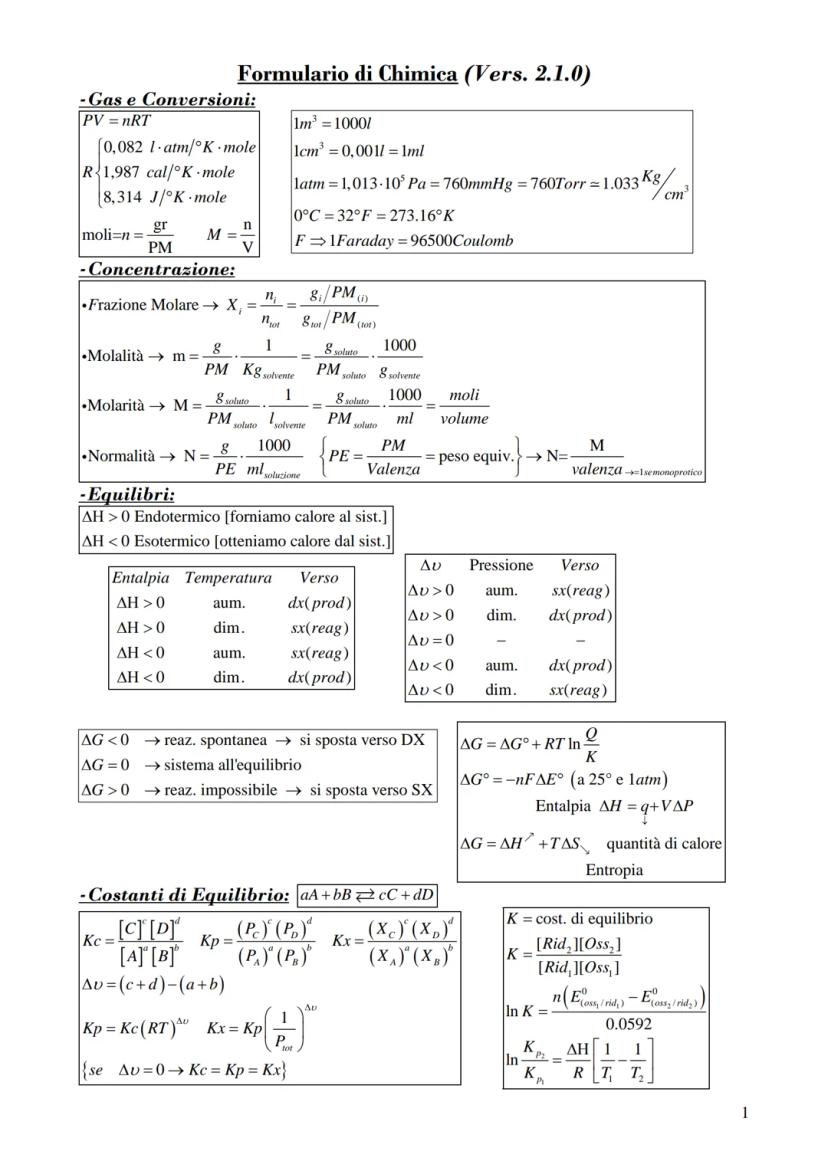 Formulario di Chimica (Vers. 2.1.0)
-Gas e Conversioni:
PV = nRT
R { 0,082 l·atm/°K·mole
1,987 cal/°K·mole
8,314 J/°K·mole
moli=n = gr/PM   M = n/V
1m³ = 1000l
1cm³ = 0,001l = 1ml
1atm = 1,013·10⁵ Pa = 760mmHg = 760Torr ≃ 1.033 Kg/cm³
0°C = 32°F = 273.16°K
F ⇒ 1Faraday = 96500Coulomb
-Concentrazione:
•Frazione Molare → X_i = n_i/n_tot = (g_i/PM_(i))/(g_tot/PM_(tot))
•Molalità → m = g/PM · 1/Kg_solvente = g_soluto/PM_soluto · 1000/g_solvente
•Molarità → M = g_soluto/PM_soluto · 1/l_solvente = g_soluto/PM_soluto · 1000/ml = moli/volume
•Normalità → N = g/PE · 1000/ml_soluzione {PE = PM/Valenza = peso equiv.} → N= M/valenza →=1 se monoprotico
-Equilibri:
ΔH > 0 Endotermico [forniamo calore al sist.]
ΔH < 0 Esotermico [otteniamo calore dal sist.]
Entalpia Temperatura Verso
ΔH > 0 aum. dx(prod)
ΔH > 0 dim. sx(reag)
ΔH < 0 aum. sx(reag)
ΔH < 0 dim. dx(prod)
Δυ Pressione Verso
Δυ > 0 aum. sx(reag)
Δυ > 0 dim. dx(prod)
Δυ = 0 – –
Δυ < 0 aum. dx(prod)
Δυ < 0 dim. sx(reag)
ΔG < 0 → reaz. spontanea → si sposta verso DX
ΔG = 0 → sistema all'equilibrio
ΔG > 0 → reaz. impossibile → si sposta verso SX
ΔG = ΔG° + RT ln Q/K
ΔG° = −nFΔE° (a 25° e 1atm)
Entalpia ΔH = q+VΔP
↓
ΔG = ΔH↗ +TΔS↘ quantità di calore
Entropia
-Costanti di Equilibrio: aA + bB ⇄ cC + dD
Kc = [C]^c [D]^d / [A]^a [B]^b   Kp = (P_C)^c (P_D)^d / (P_A)^a (P_B)^b   Kx = (X_C)^c (X_D)^d / (X_A)^a (X_B)^b
Δυ = (c + d) − (a + b)
Kp = Kc(RT)^Δυ   Kx = Kp(1/P_tot)^Δυ
{se Δυ = 0 → Kc = Kp = Kx}
K = cost. di equilibrio
K = [Rid₂][Oss₂]/[Rid₁][Oss₁]
ln K = n(E⁰_(oss₁/rid₁) − E⁰_(oss₂/rid₂))/0.0592
ln K_p₂/K_p₁ = ΔH/R [1/T₁ − 1/T₂]
1